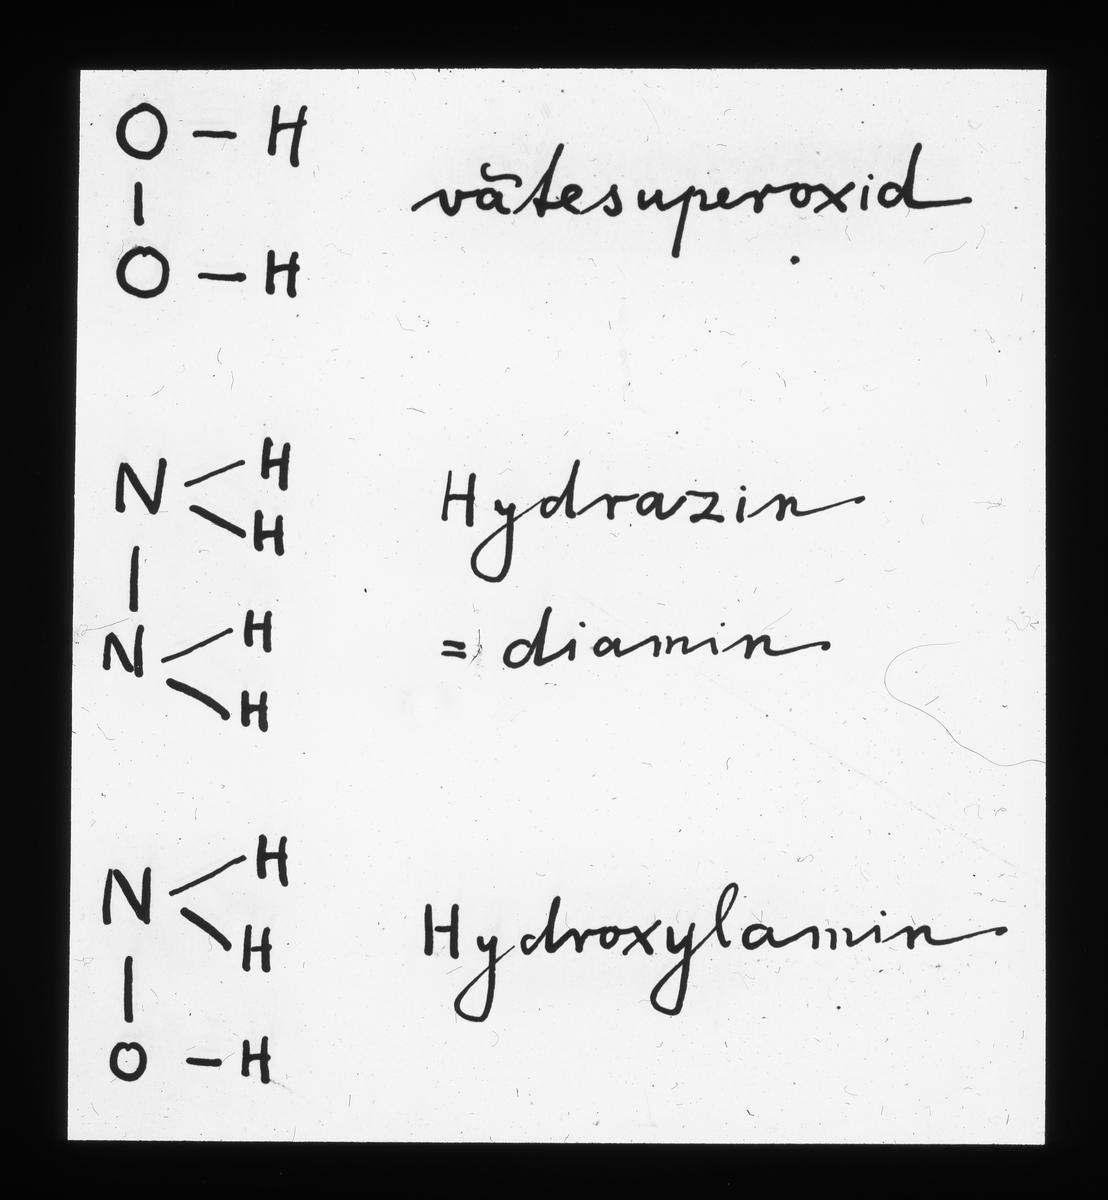 O – H
|
O – H
vätesuperoxid
N H
H
|
N H
H
Hydrazin
= diamin
N H
H
|
O – H
Hydroxylamin